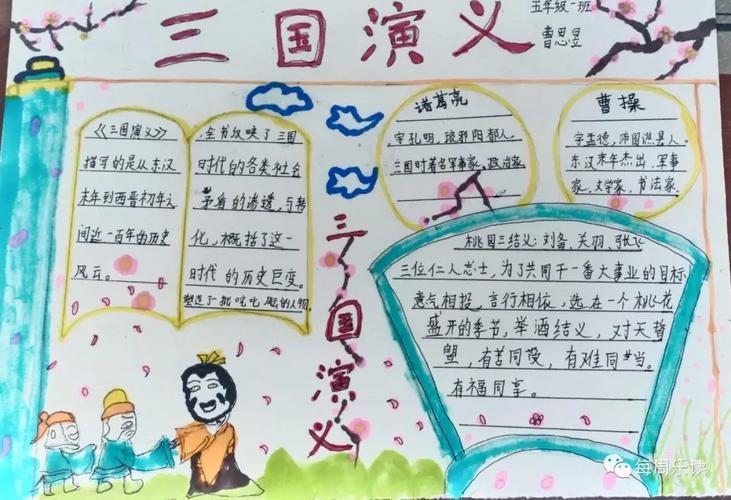 三国演义
五年级一班
曹思昱
《三国演义》
描写的是从东汉
末年到西晋初年之
间近一百年的历史
风云。
全书反映了三国
时代的各类社会
矛盾的渗透与转
化,概括了这一
时代的历史巨变。
塑造了一批叱咤风云的人物
三国演义
诸葛亮
字孔明,琅琊阳都人。
三国时著名军事家,政治家
曹操
字孟德,沛国谯县人。
东汉末年杰出,军事
家,文学家,书法家。
桃园三结义:刘备,关羽,张飞
三位仁人志士,为了共同干一番大事业的目标
意气相投,言行相依,选在一个桃花
盛开的季节,举酒结义,对天督
盟,有苦同受,有难同当。
有福同享。
每周乐读